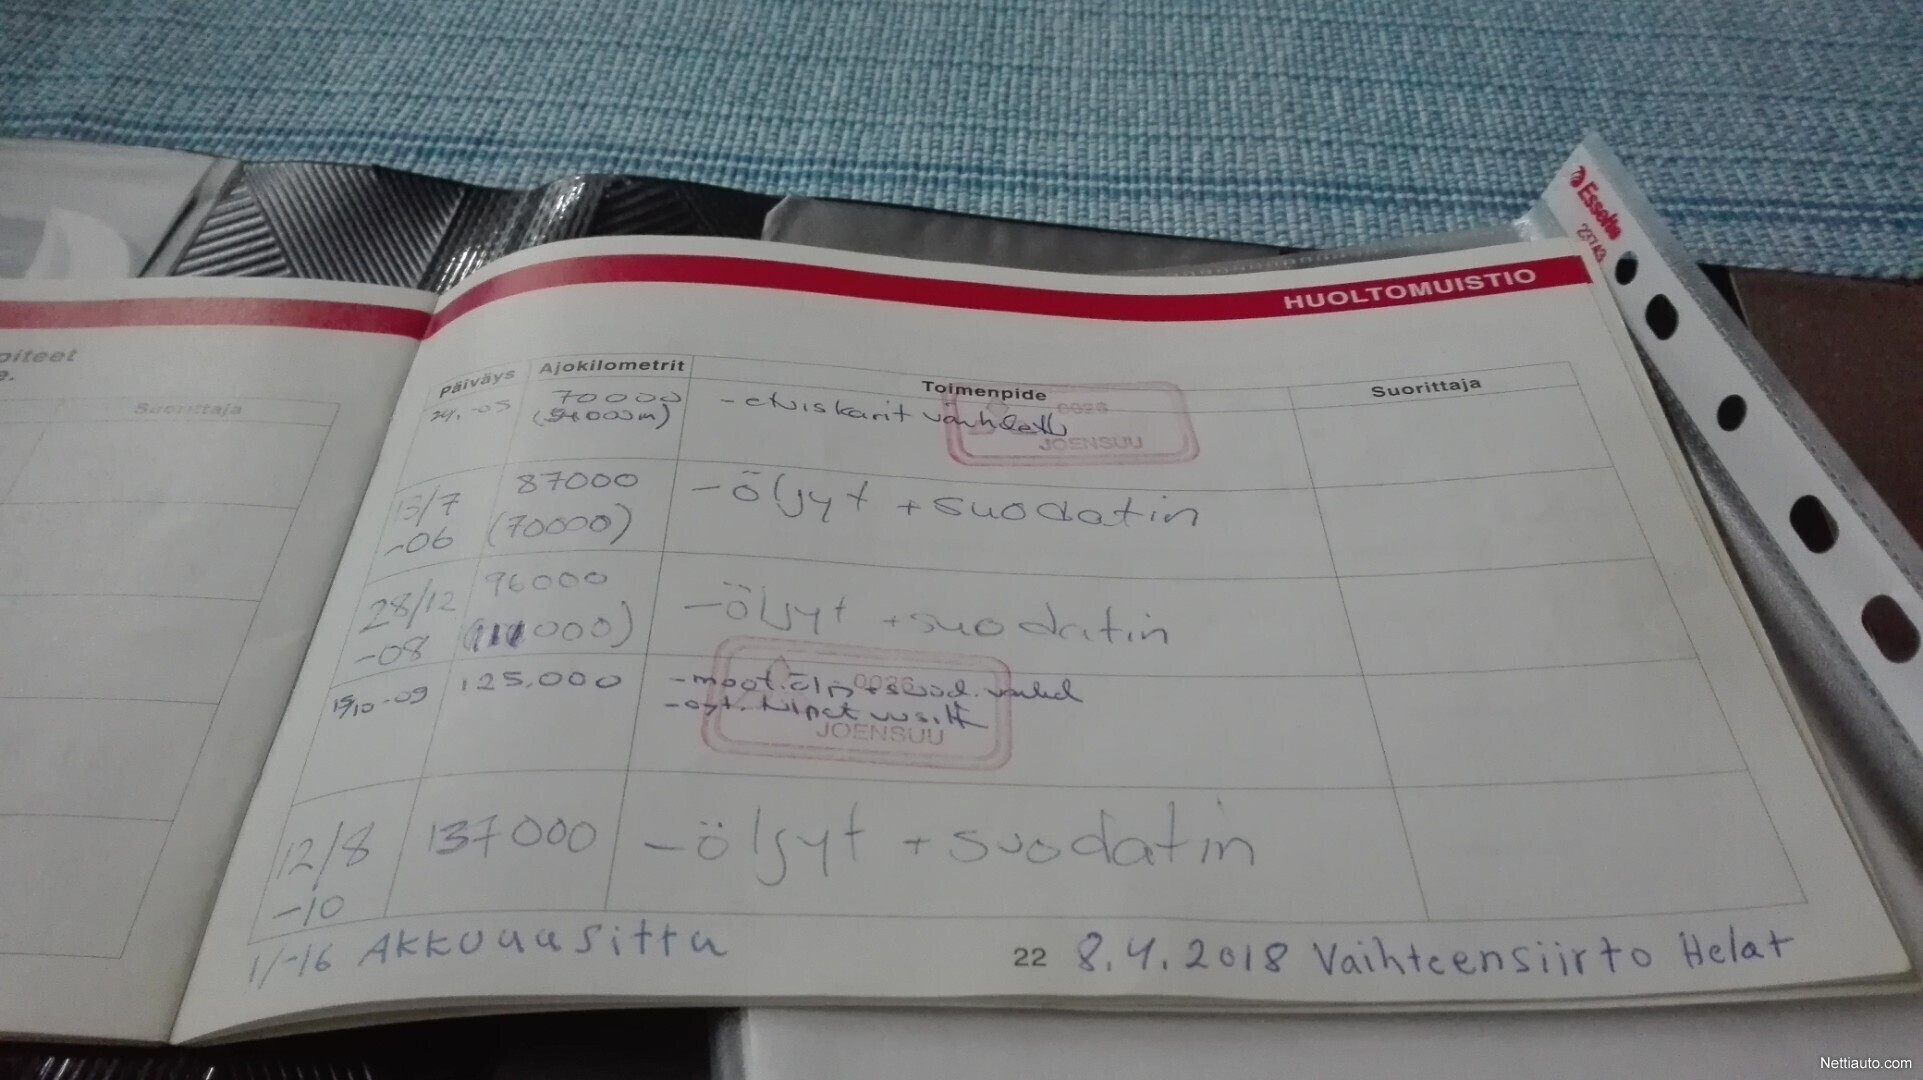 Esselte
HUOLTOMUISTIO
piteet
e.
Suorittaja
Päiväys Ajokilometrit Toimenpide Suorittaja
-05 70000 - etuiskarit
0026
JOENSUU
13/7 87000 - öljyt + suodatin
-06 (70000)
28/12 96000 - öljyt + suodatin
-08 (111000)
15/10-09 125.000 - moot. öljy + suod.
0026
JOENSUU
12/8 137000 - öljyt + suodatin
-10
1/-16 AKKU uusittu
22 8.4.2018 Vaihteensiirto Helat
Nettiauto.com